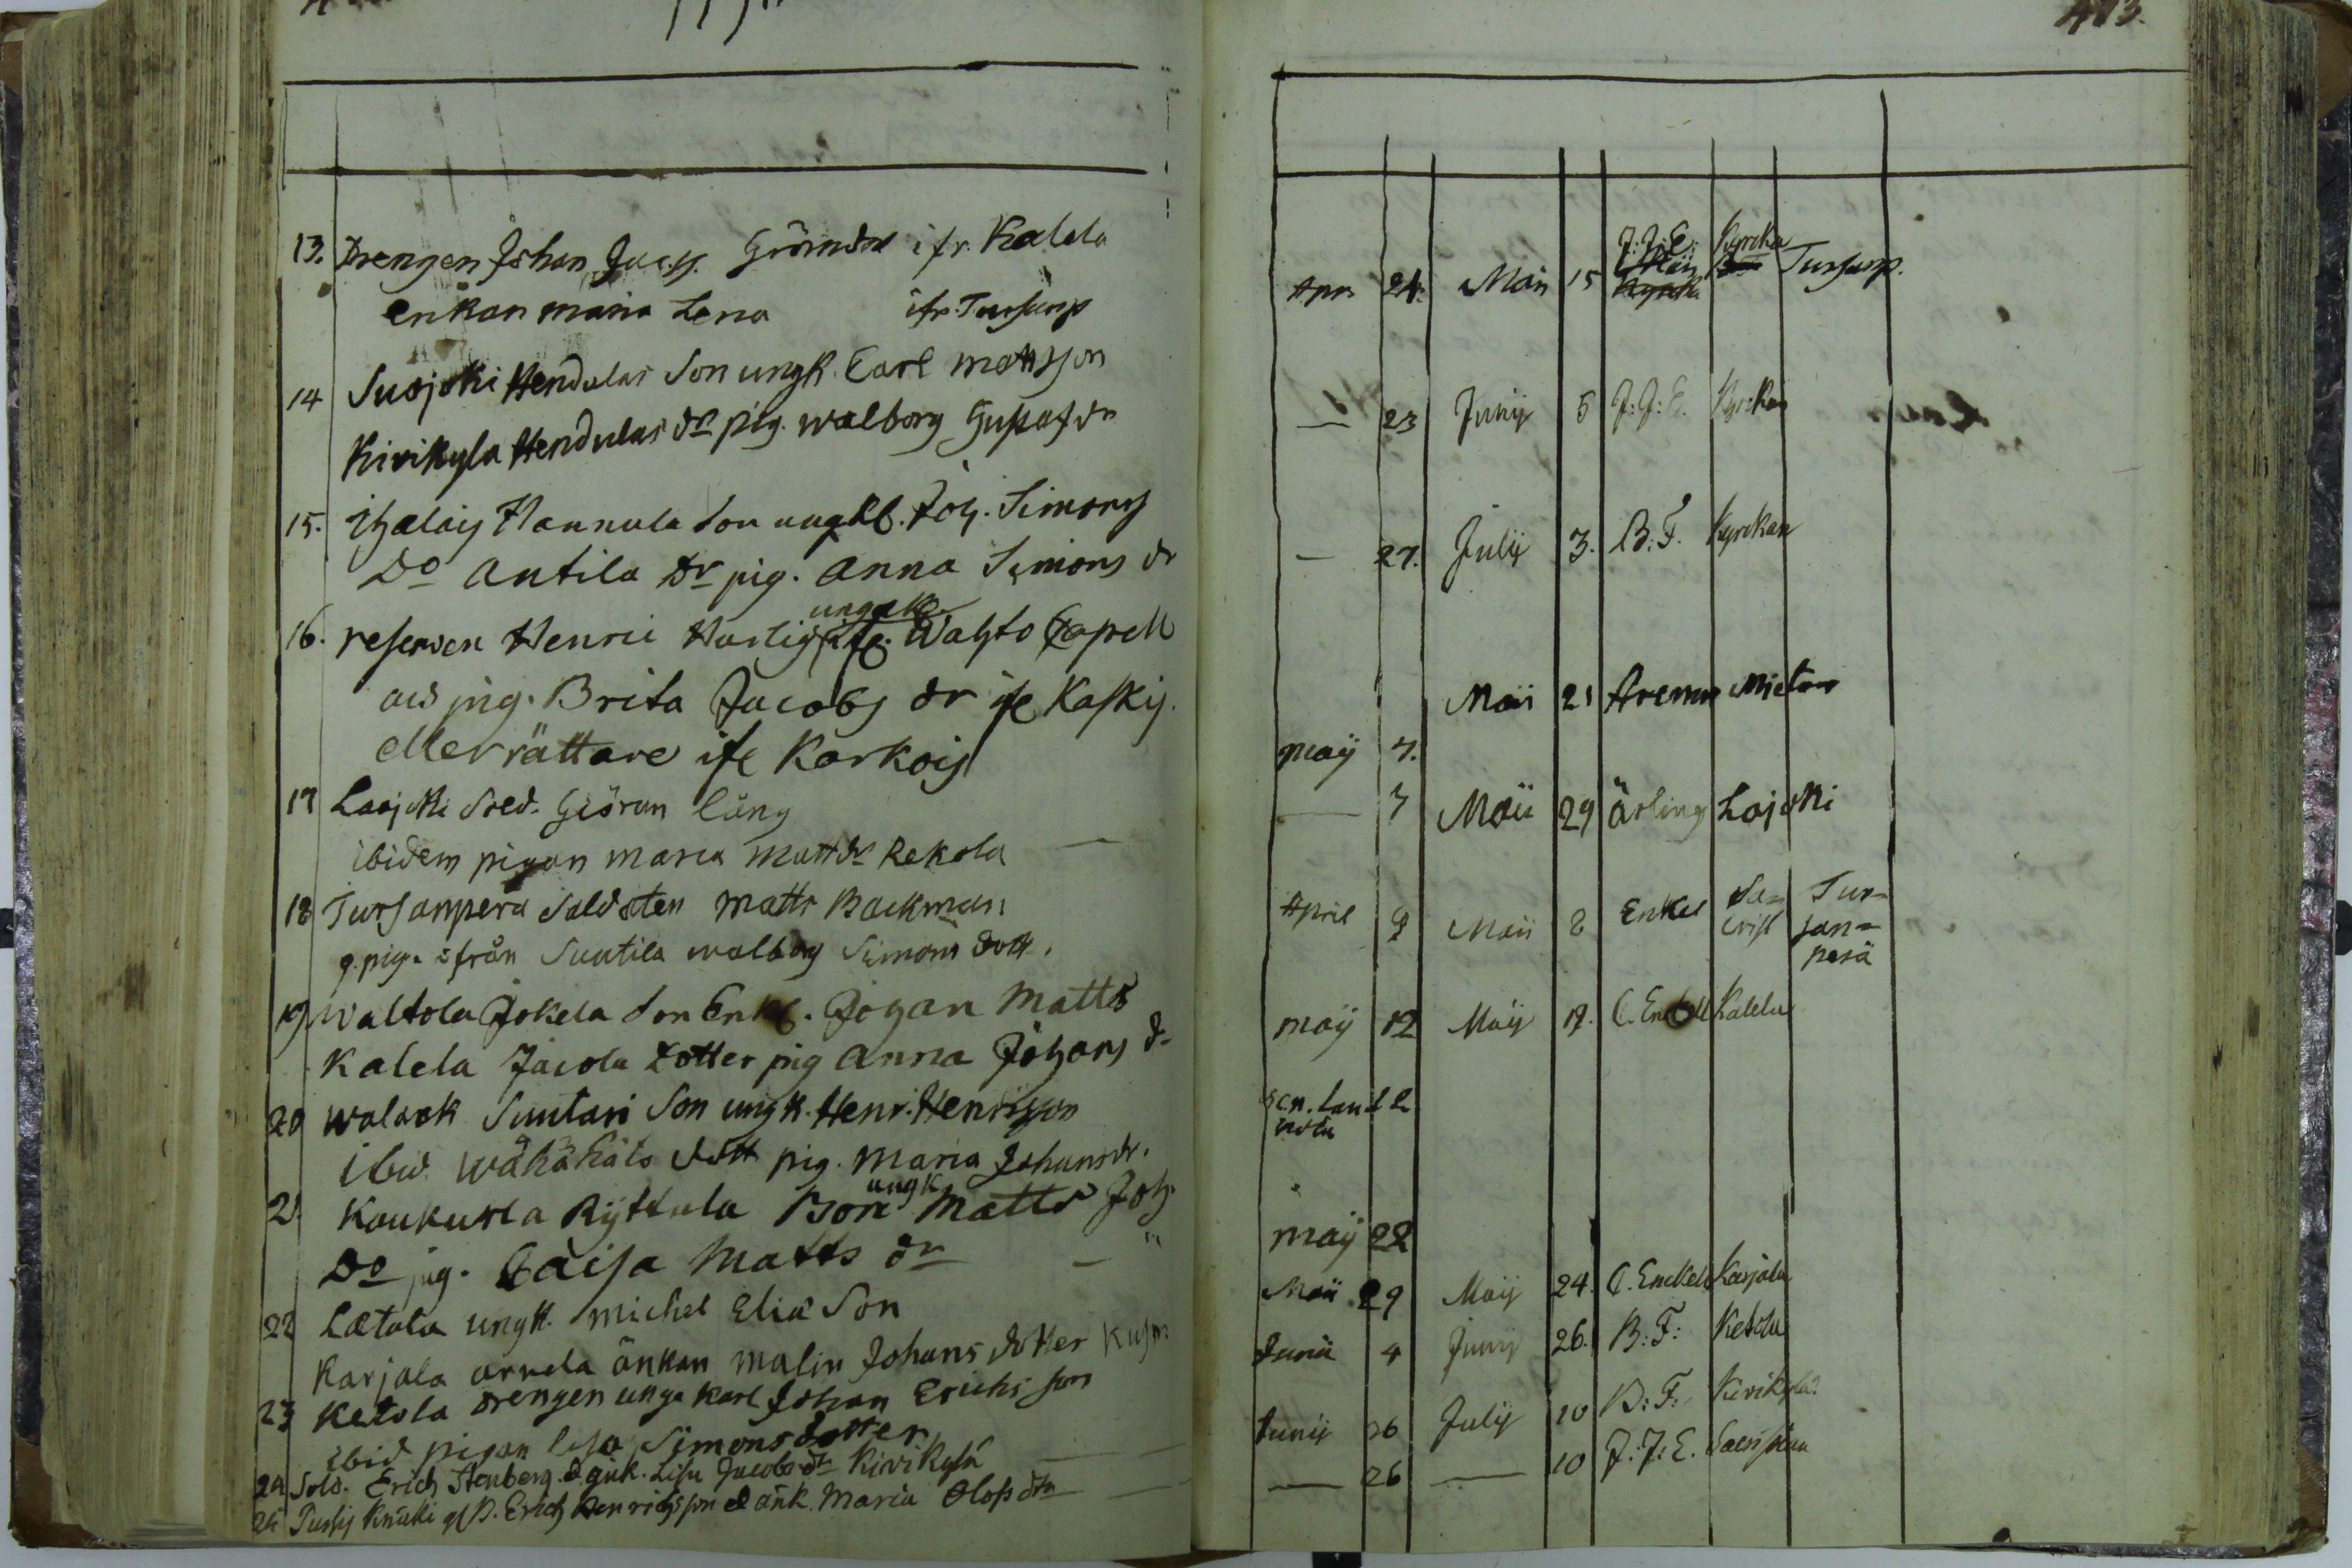 413.
13. Drengen Johan Jacss. Grönda ifr. Kalela
enkan maria Lena ifr. Tursanp
14 Suojoki Hendulas Son ungk. Carl mattsson
Kirikyla Hendulas dr pig. walborg Gustafdr
15. Hannula Son ungkl. Joh. Simons
Do Antila Dr pig. Anna Simons dr
16. reserven Henric ungk. Wahto Capell
pig. Brita Jacobs dr ifr Kaskis.
eller rättare ifr Karkois
17 Laajoki Sold. Giöran lång
ibidem pigan maria mattdr Rekola —
18 Tursanpera Soldaten matts Backman
q. pig. ifrån Suutila walborg Simons dott.
19 Waltola Jokela Son Enkl. Johan Matts
Kalela Jacola Dotter pig Anna Johans dr
20 walask Suutari Son ungk. Henr. Henrisson
ibid. wähähäto dott pig. maria Johansdr.
21. Koukurla Ryttula Son ungk Matts Joh.
Do pig. Caisa Matts dr —
22 Lætala ungk. michel Elia Son
Karjala annela änkan malin Johans dotter
23 Ketola drengen unga karl Johan Erichs son
ibid pigan lisa Simons dotter
24 Sold. Erich Stenberg. & änk. Lisa Jacobs dr Kirikylä —
25 Erich Henrichsson & änk. Maria Olofs dtr —
Apr. 24. Maii 15 J:J:E: Kyrckan Tursanp.
— 23 Junij 5 J:J:E. Kyrckan
— 27. Julij 3. B:F. Kyrckan
Maii 21 Mietois
maij 7.
— 7 Maii 29 ärling Lajoki
April 9 Maii 8 Enkel Sacrist Tur-
san-
perä
maij 12 Maij 17. C. Enckell Kalela
maij 22
Maii 29 Maij 24. C. Enckell Karjala
Junii 4 Junij 26. B:F: Ketola
Junij 26 Julij 10 B:F: Kirikyla
— 26 — 10 J:J:E. Sacristian